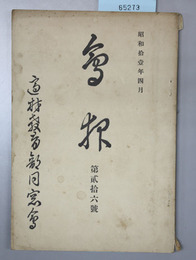 65273
昭和拾壹年四月
會報
第貳拾六號
同窓會